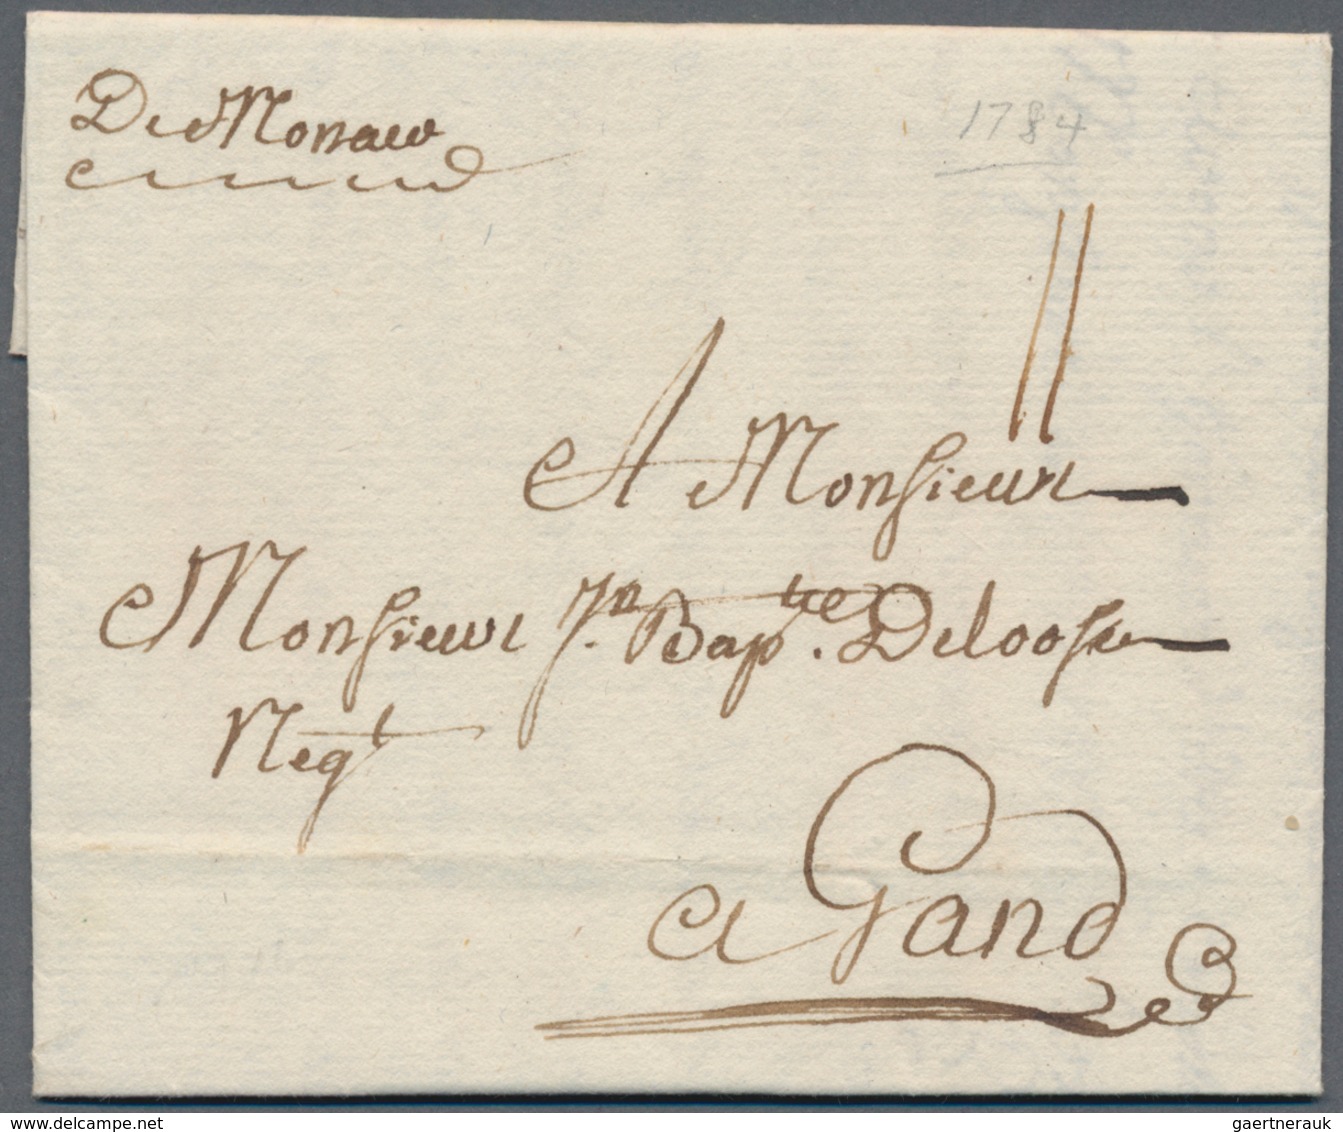 De Monaco
1784
11
A Monsieur
Monsieur Jn. Baptte. Deloose
Negt
a Gand
www.delcampe.net
gaertnerauk